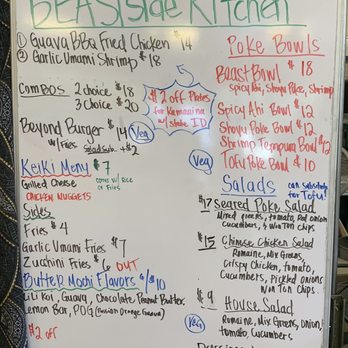 BEASTside Kitchen
① Guava BBQ Fried Chicken $14
② Garlic Umami Shrimp $18
Combos 2 choice $18
3 choice $20
$2 off Plates
for Kamaaina
w/ state ID
Beyond Burger $14
w/ Fries Salad sub +$2
Veg
Keiki Menu $7
Grilled Cheese
comes w/ rice
or fries
CHICKEN NUGGETS
Sides
Fries $4
Garlic Umami Fries $7
Zucchini Fries $6 OUT
Butter Mochi Flavors
$10
Lili Koi, Guava, Chocolate, Peanut Butter,
Lemon Bar, POG (Passion Orange Guava)
$2 off
Poke Bowls
Beast Bowl $18
Spicy Ahi, Shoyu Poke, Shrimp
Spicy Ahi Bowl $12
Shoyu Poke Bowl $12
Shrimp Tempura Bowl $12
Veg
Tofu Poke Bowl $10
Salads can substitute
for Tofu!
$17 Seared Poke Salad
Mixed greens, tomato, Red onion
Cucumbers, & Won Ton Chips
$15 Chinese Chicken Salad
Romaine, Mix Greens,
Crispy Chicken, tomato,
Cucumbers, Pickled onions
Won Ton Chips.
$9 House Salad
Veg
Romaine, Mix Greens, Onion,
tomato, Cucumbers